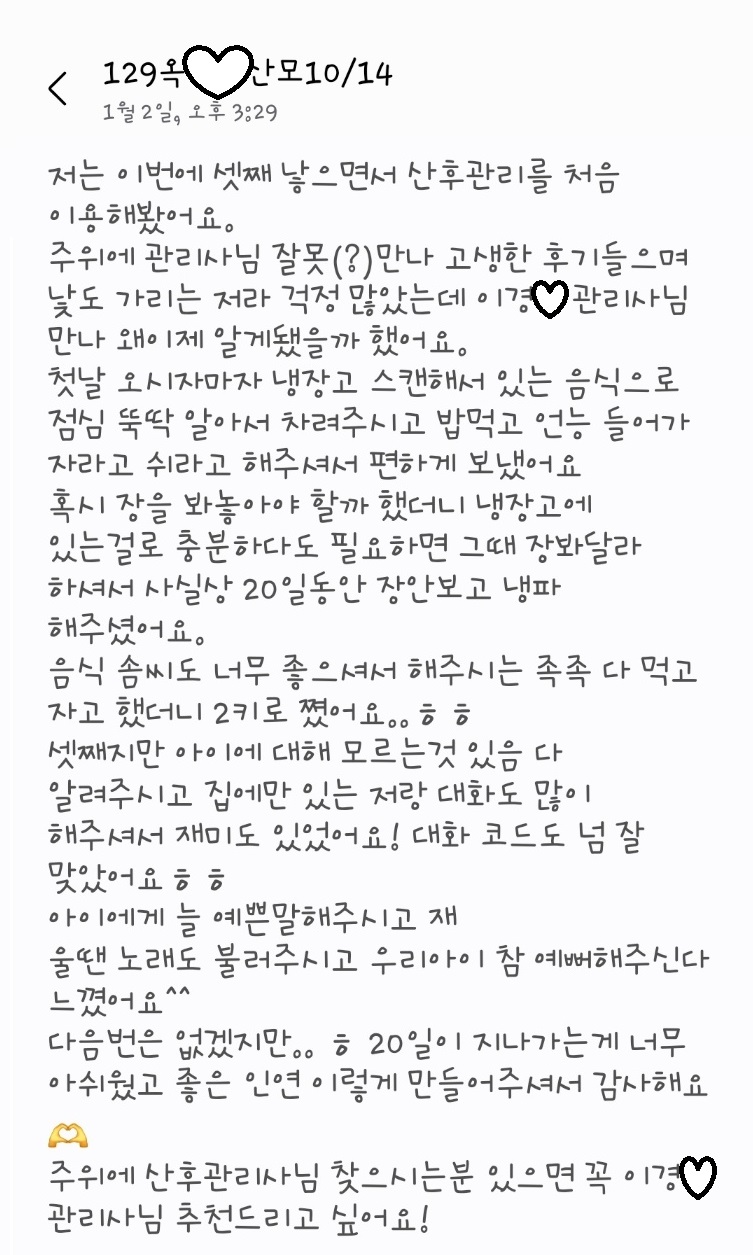 129옥 산모10/14
1월 2일, 오후 3:29
저는 이번에 셋째 낳으면서 산후관리를 처음
이용해봤어요.
주위에 관리사님 잘못(?)만나 고생한 후기들으며
낯도 가리는 저라 걱정 많았는데 이경 관리사님
만나 왜이제 알게됐을까 했어요.
첫날 오시자마자 냉장고 스캔해서 있는 음식으로
점심 뚝딱 알아서 차려주시고 밥먹고 언능 들어가
자라고 쉬라고 해주셔서 편하게 보냈어요
혹시 장을 봐놓아야 할까 했더니 냉장고에
있는걸로 충분하다도 필요하면 그때 장봐달라
하셔서 사실상 20일동안 장안보고 냉파
해주셨어요.
음식 솜씨도 너무 좋으셔서 해주시는 족족 다 먹고
자고 했더니 2키로 쪘어요.. ㅎ ㅎ
셋째지만 아이에 대해 모르는것 있음 다
알려주시고 집에만 있는 저랑 대화도 많이
해주셔서 재미도 있었어요! 대화 코드도 넘 잘
맞았어요 ㅎ ㅎ
아이에게 늘 예쁜말해주시고 재
울땐 노래도 불러주시고 우리아이 참 예뻐해주신다
느꼈어요^^
다음번은 없겠지만.. ㅎ 20일이 지나가는게 너무
아쉬웠고 좋은 인연 이렇게 만들어주셔서 감사해요
🫶
주위에 산후관리사님 찾으시는분 있으면 꼭 이경
관리사님 추천드리고 싶어요!